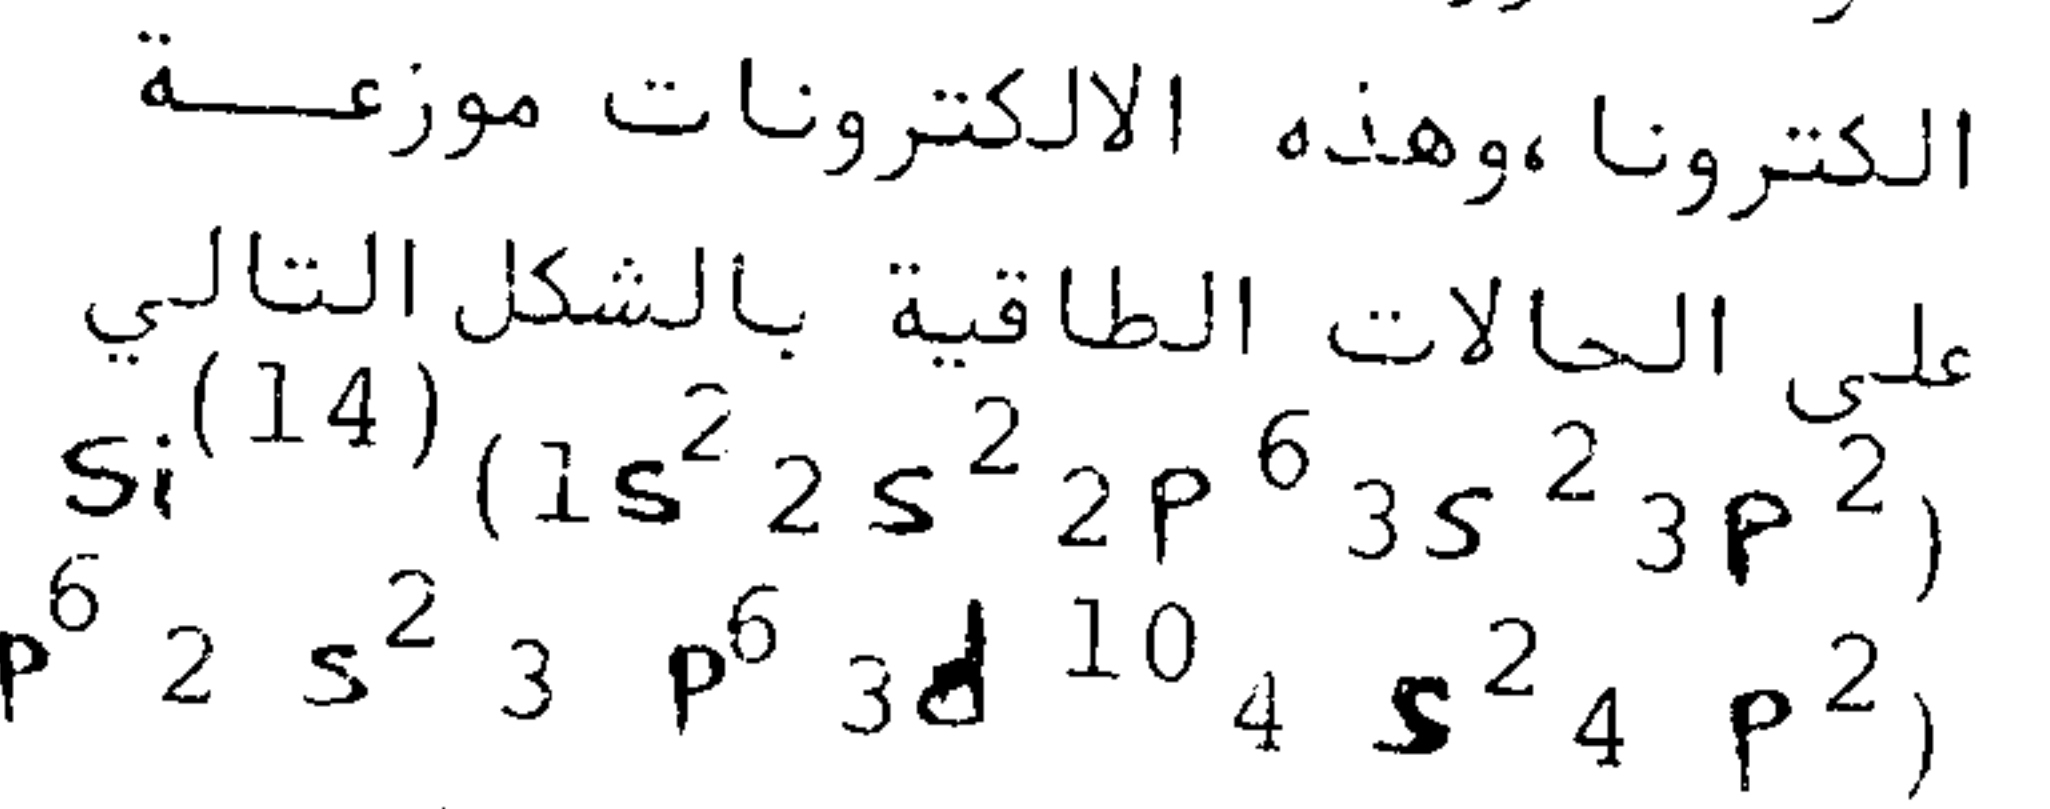 الكترونا ،وهذه الالكترونات موزعة
على الحالات الطاقية بالشكل التالي
Si⁽¹⁴⁾ (1s² 2s² 2p⁶ 3s² 3p²)
p⁶ 2 s² 3 p⁶ 3d ¹⁰ 4 s² 4 p²)